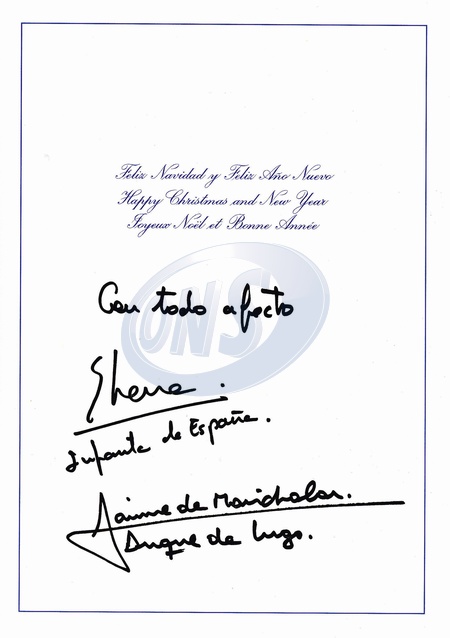 Feliz Navidad y Feliz Año Nuevo
Happy Christmas and New Year
Joyeux Noël et Bonne Année
Con todo afecto
ONS
Elena.
Infanta de España.
Jaime de Marichalar.
Duque de Lugo.